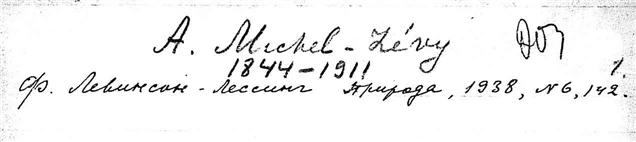 A. Michel-Lévy
1844-1911
1.
Ф. Левинсон-Лессинг Природа, 1938, N6, 142.